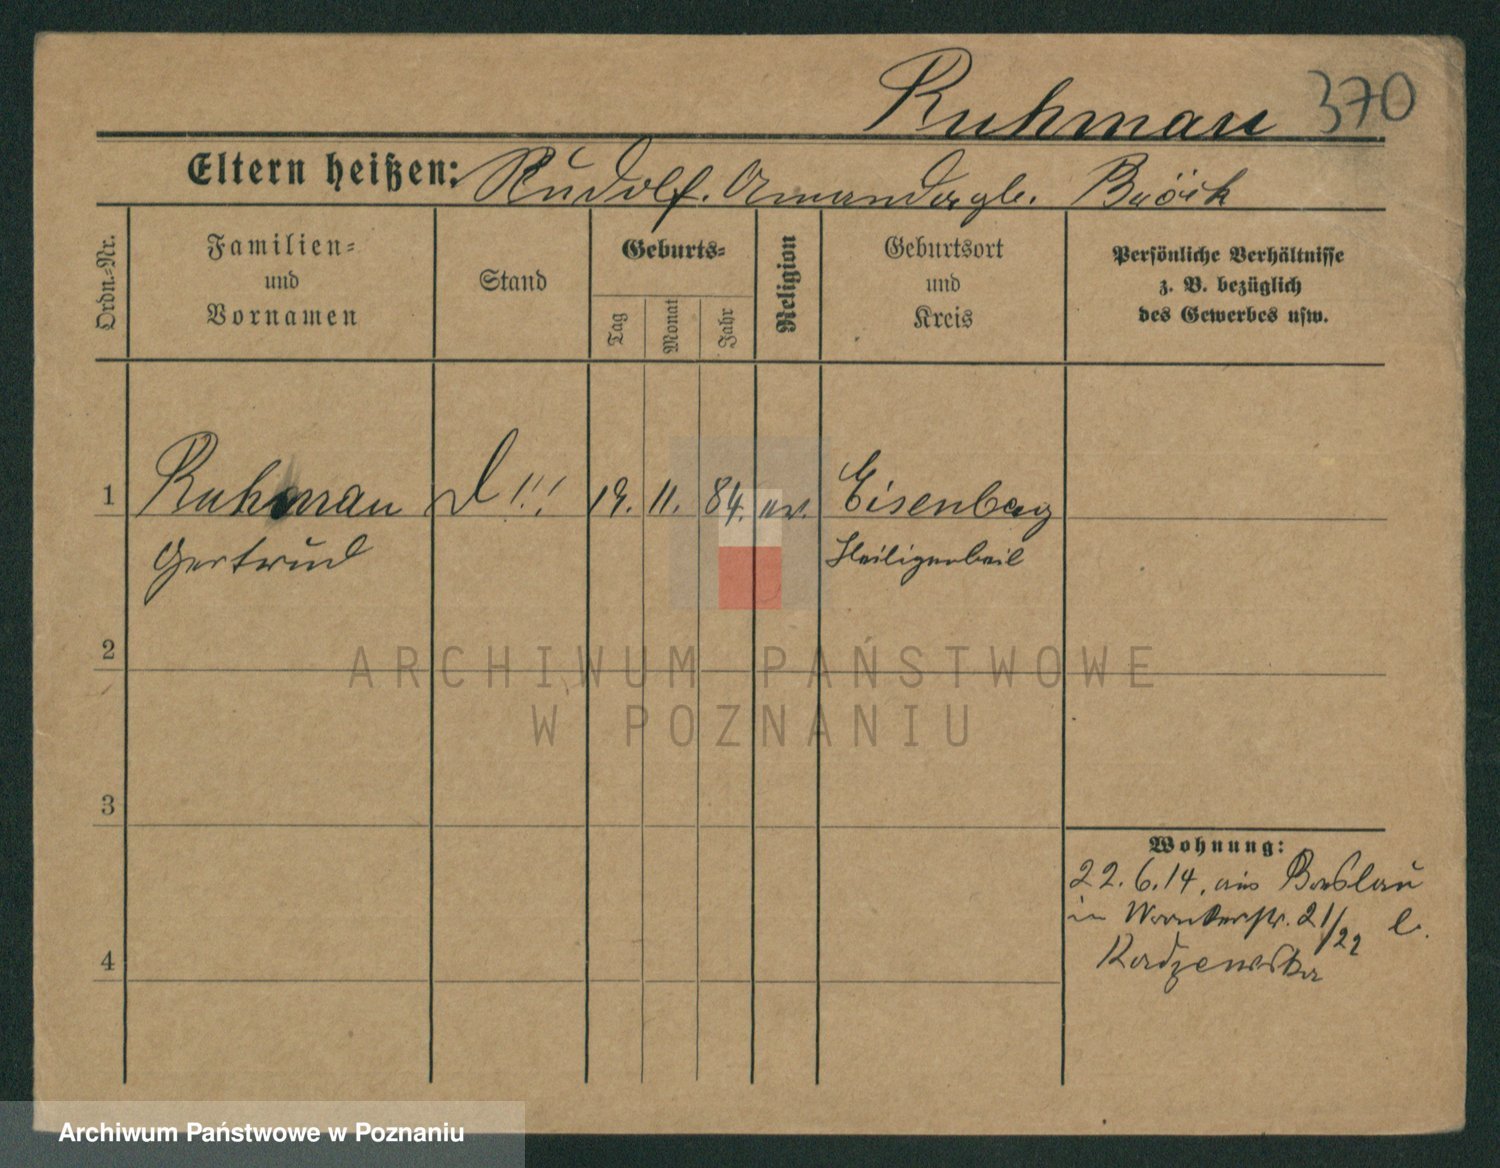 Ruhmau 370
Eltern heißen: Rudolf. Amanda gb.
Ordn.-Nr.
Familien-
und
Vornamen
Stand
Geburts-
Tag
Monat
Jahr
Religion
Geburtsort
und
Kreis
Persönliche Verhältnisse
z. B. bezüglich
des Gewerbes usw.
1 Ruhmau 19. 11. 84. ev. Eisenberg
Gertrud Heiligenbeil
2
3
4
Wohnung:
22. 6. 14. aus Breslau
in 21/22 b.
Radzewska
ARCHIWUM PAŃSTWOWE
W POZNANIU
Archiwum Państwowe w Poznaniu